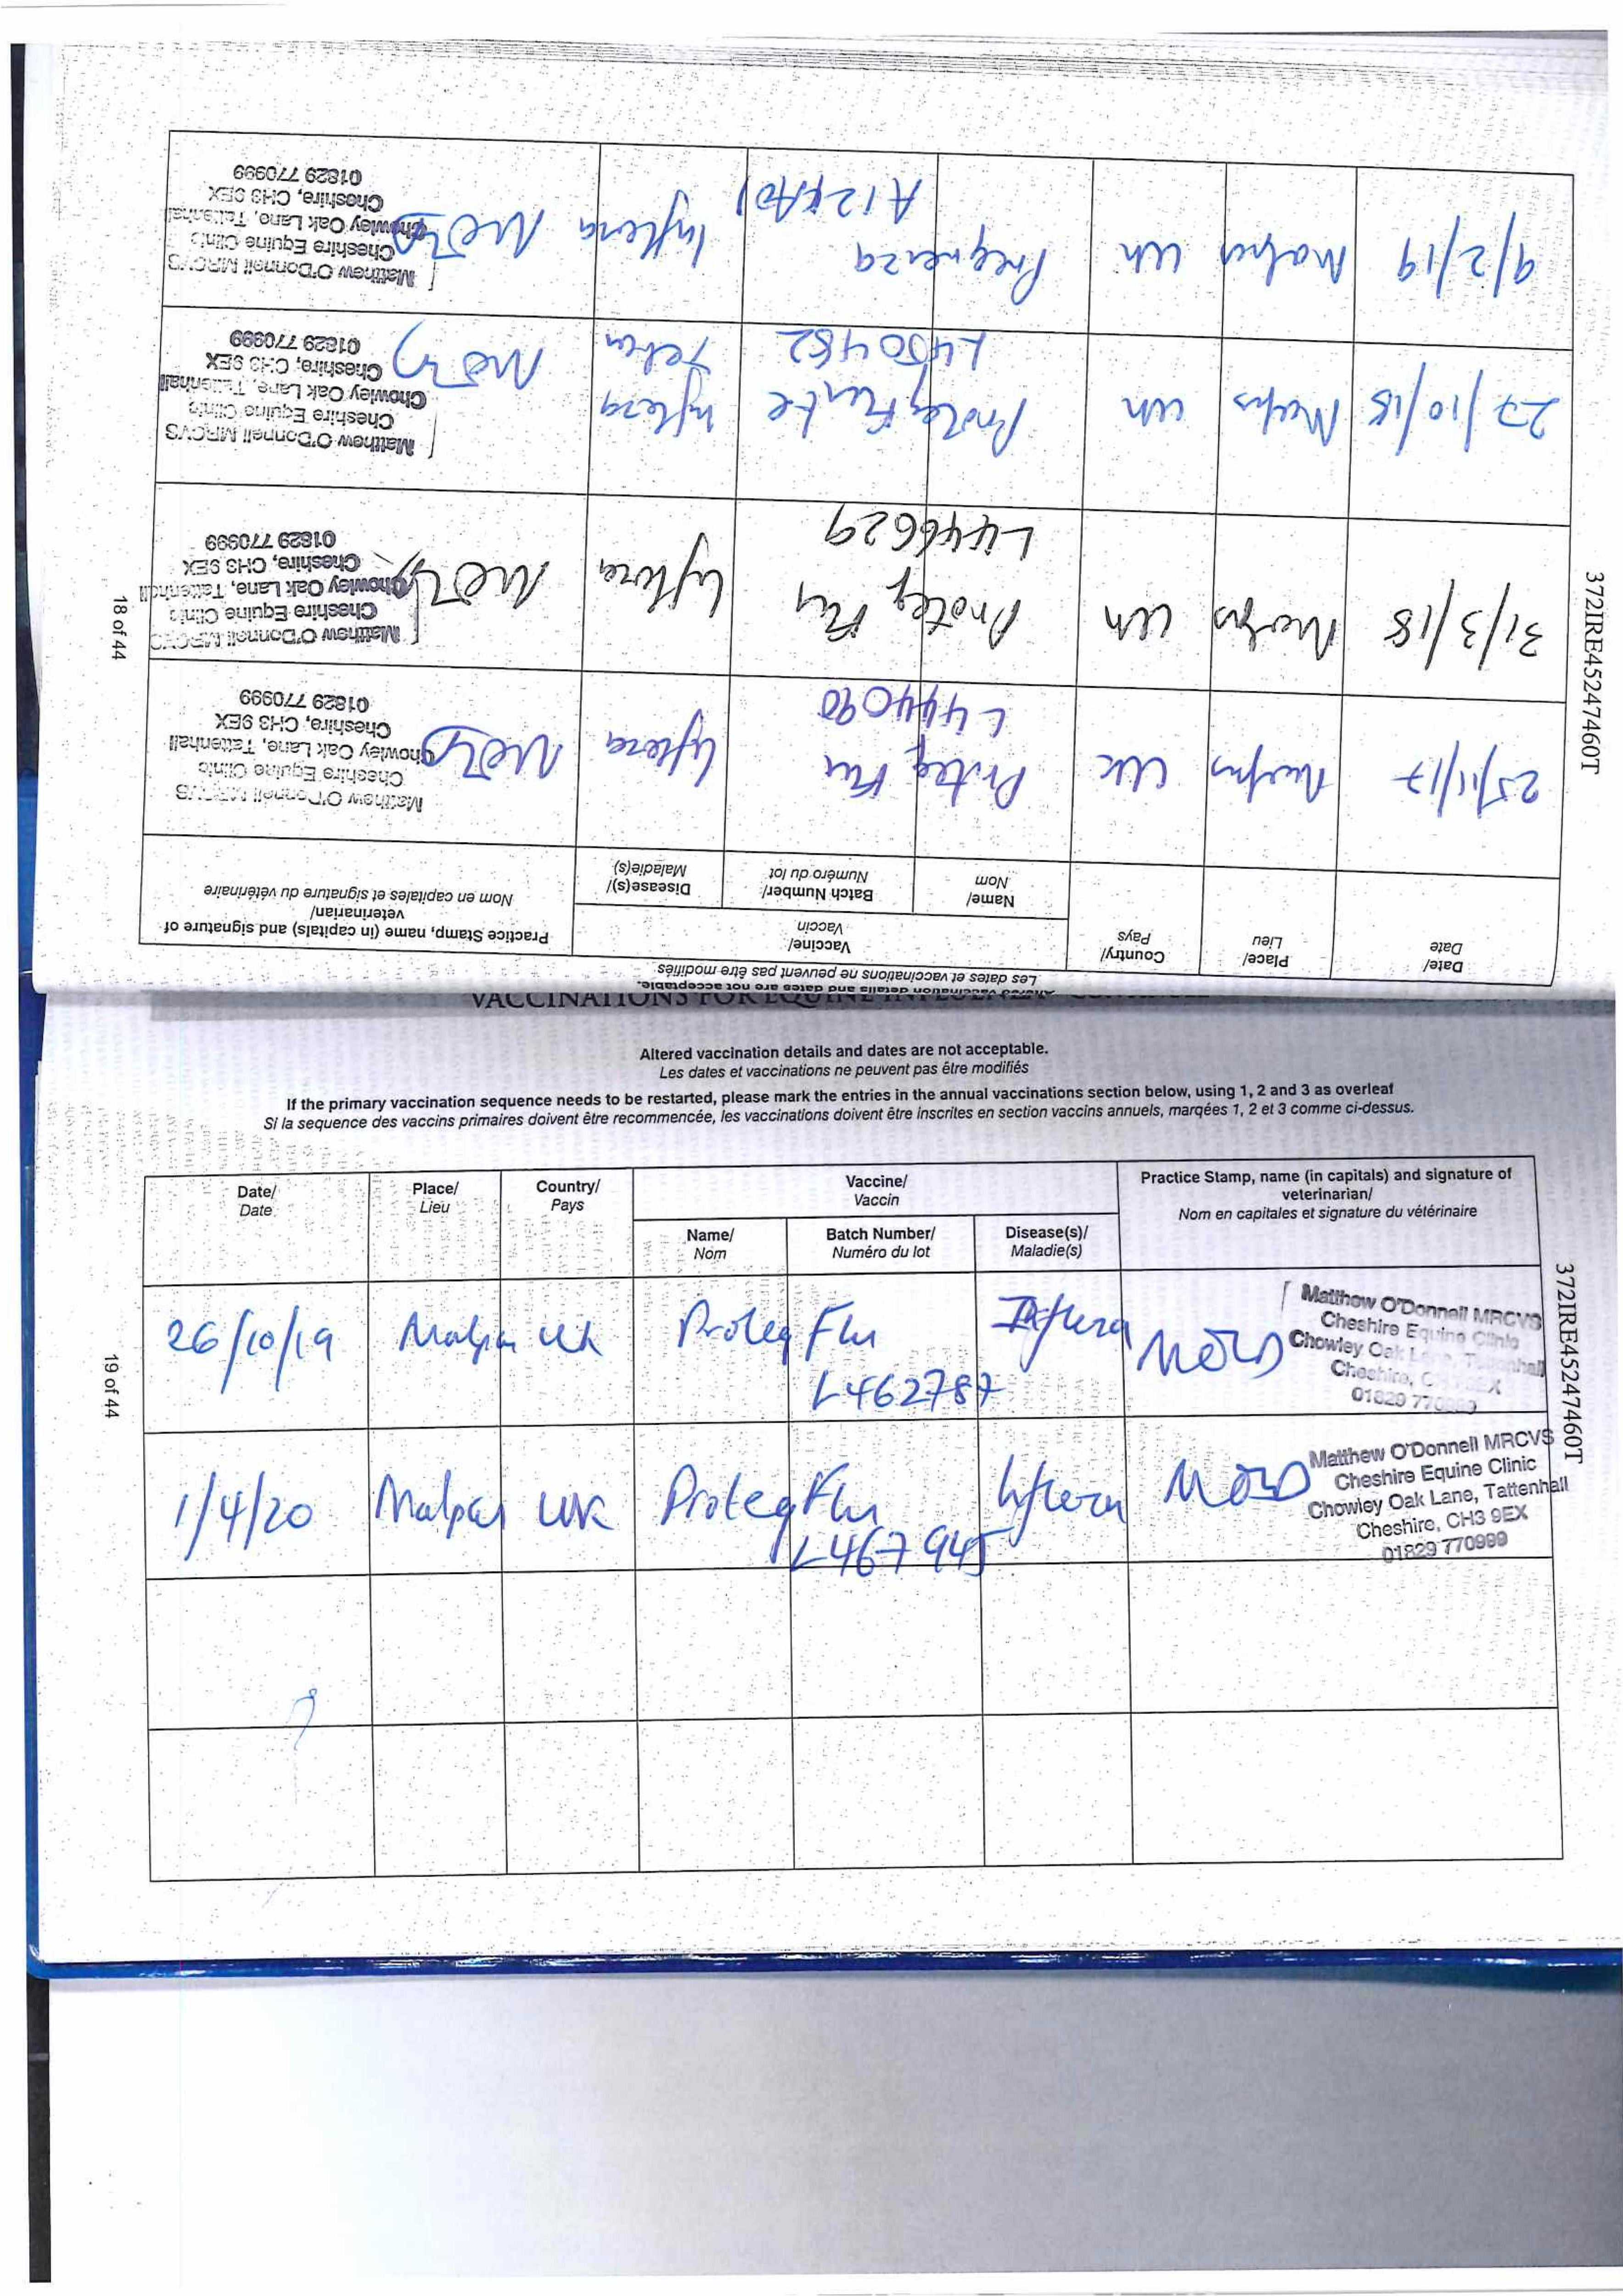 Altered vaccination details and dates are not acceptable.
Les dates et vaccinations ne peuvent pas être modifiés
Date/
Date
Place/
Lieu
Country/
Pays
Vaccine/
Vaccin
Name/
Nom
Batch Number/
Numéro du lot
Disease(s)/
Maladie(s)
Practice Stamp, name (in capitals) and signature of
veterinarian/
Nom en capitales et signature du vétérinaire
25/11/17
UK
Proteq Flu
L444090
Matthew O'Donnell MRCVS
Cheshire Equine Clinic
Chowley Oak Lane, Tattenhall
Cheshire, CH3 9EX
01829 770999
31/3/18
UK
Proteq Flu
L446629
Matthew O'Donnell MRCVS
Cheshire Equine Clinic
Chowley Oak Lane, Tattenhall
Cheshire, CH3 9EX
01829 770999
27/10/18
UK
ProteqFlu te
L450482
Matthew O'Donnell MRCVS
Cheshire Equine Clinic
Chowley Oak Lane, Tattenhall
Cheshire, CH3 9EX
01829 770999
9/2/19
Malpas
UK
Prequenza
Matthew O'Donnell MRCVS
Cheshire Equine Clinic
Chowley Oak Lane, Tattenhall
Cheshire, CH3 9EX
01829 770999
18 of 44
372IRE45247460T
VACCINATIONS FOR EQUINE INFLUENZA
Altered vaccination details and dates are not acceptable.
Les dates et vaccinations ne peuvent pas être modifiés
If the primary vaccination sequence needs to be restarted, please mark the entries in the annual vaccinations section below, using 1, 2 and 3 as overleaf
Si la sequence des vaccins primaires doivent être recommencée, les vaccinations doivent être inscrites en section vaccins annuels, marqées 1, 2 et 3 comme ci-dessus.
Date/
Date
Place/
Lieu
Country/
Pays
Vaccine/
Vaccin
Name/
Nom
Batch Number/
Numéro du lot
Disease(s)/
Maladie(s)
Practice Stamp, name (in capitals) and signature of
veterinarian/
Nom en capitales et signature du vétérinaire
26/10/19
Malpas
UK
Proteq Flu
L462787
Matthew O'Donnell MRCVS
Cheshire Equine Clinic
Chowley Oak Tattenhall
Cheshire,
01829
1/4/20
Malpas
UK
ProteqFlu
L467945
Matthew O'Donnell MRCVS
Cheshire Equine Clinic
Chowley Oak Lane, Tattenhall
Cheshire, CH3 9EX
01829 770999
19 of 44
372IRE45247460T